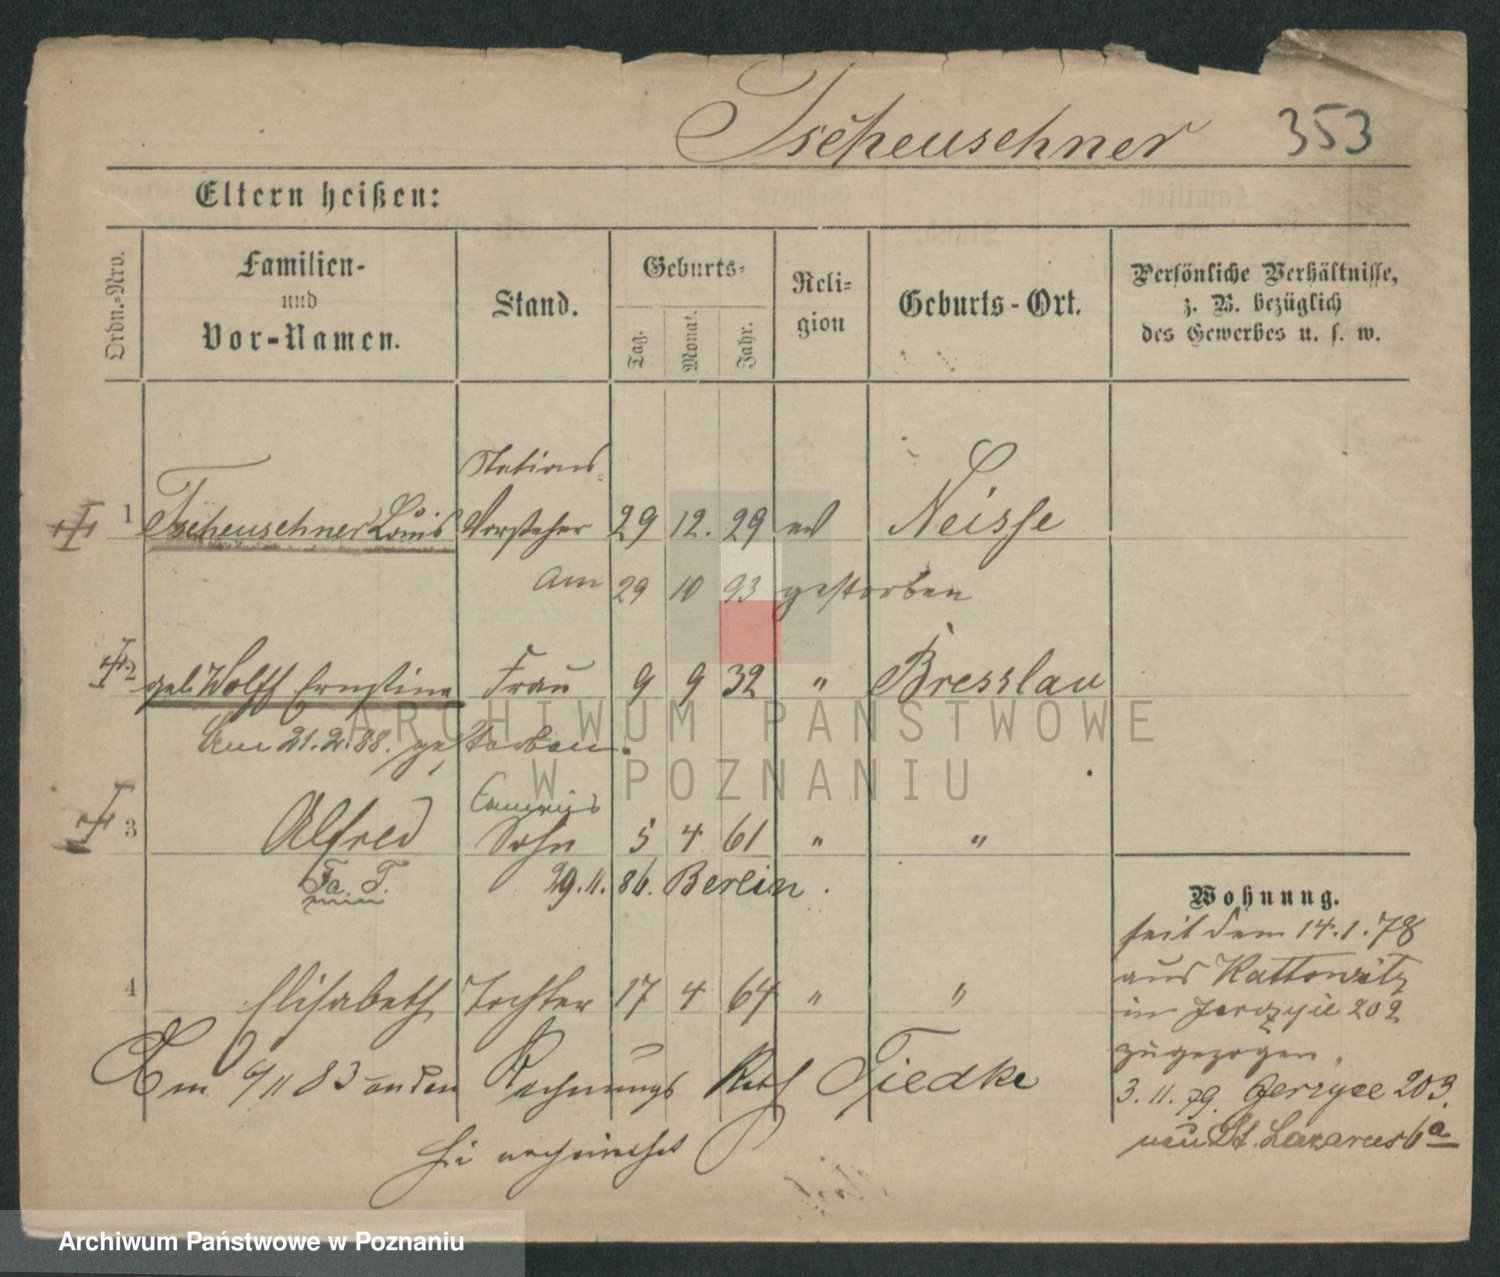 Tscheuschner 353
Eltern heißen:
Ordn.=Nro.
Familien-
und
Vor-Namen.
Stand.
Geburts-
Tag.
Monat.
Jahr.
Reli-
gion
Geburts-Ort.
Persönliche Verhältnisse,
z. B. bezüglich
des Gewerbes u. s. w.
Stations
1 Tscheuschner Louis Vorsteher 29 12. 29 Neisse
am 29 10 93 gestorben
2 geb. Wolff Ernstine Frau 9 9 32 " Bresslau
Am 21.2.88. gestorben.
3 Alfred Sohn 5 4 61 " "
Fa. T. 29.11.86. Berlin.
4 Elisabeth Tochter 17 4 64 " "
Am 6/11 83 an den Rechnungs Rath Tiedke
Wohnung.
seit dem 14.1.78
aus Kattowitz
in Jerzyce 202
zugezogen.
3.11.79. Jerzyce 203.
St. Lazarus 6a
ARCHIWUM PAŃSTWOWE
W POZNANIU
Archiwum Państwowe w Poznaniu